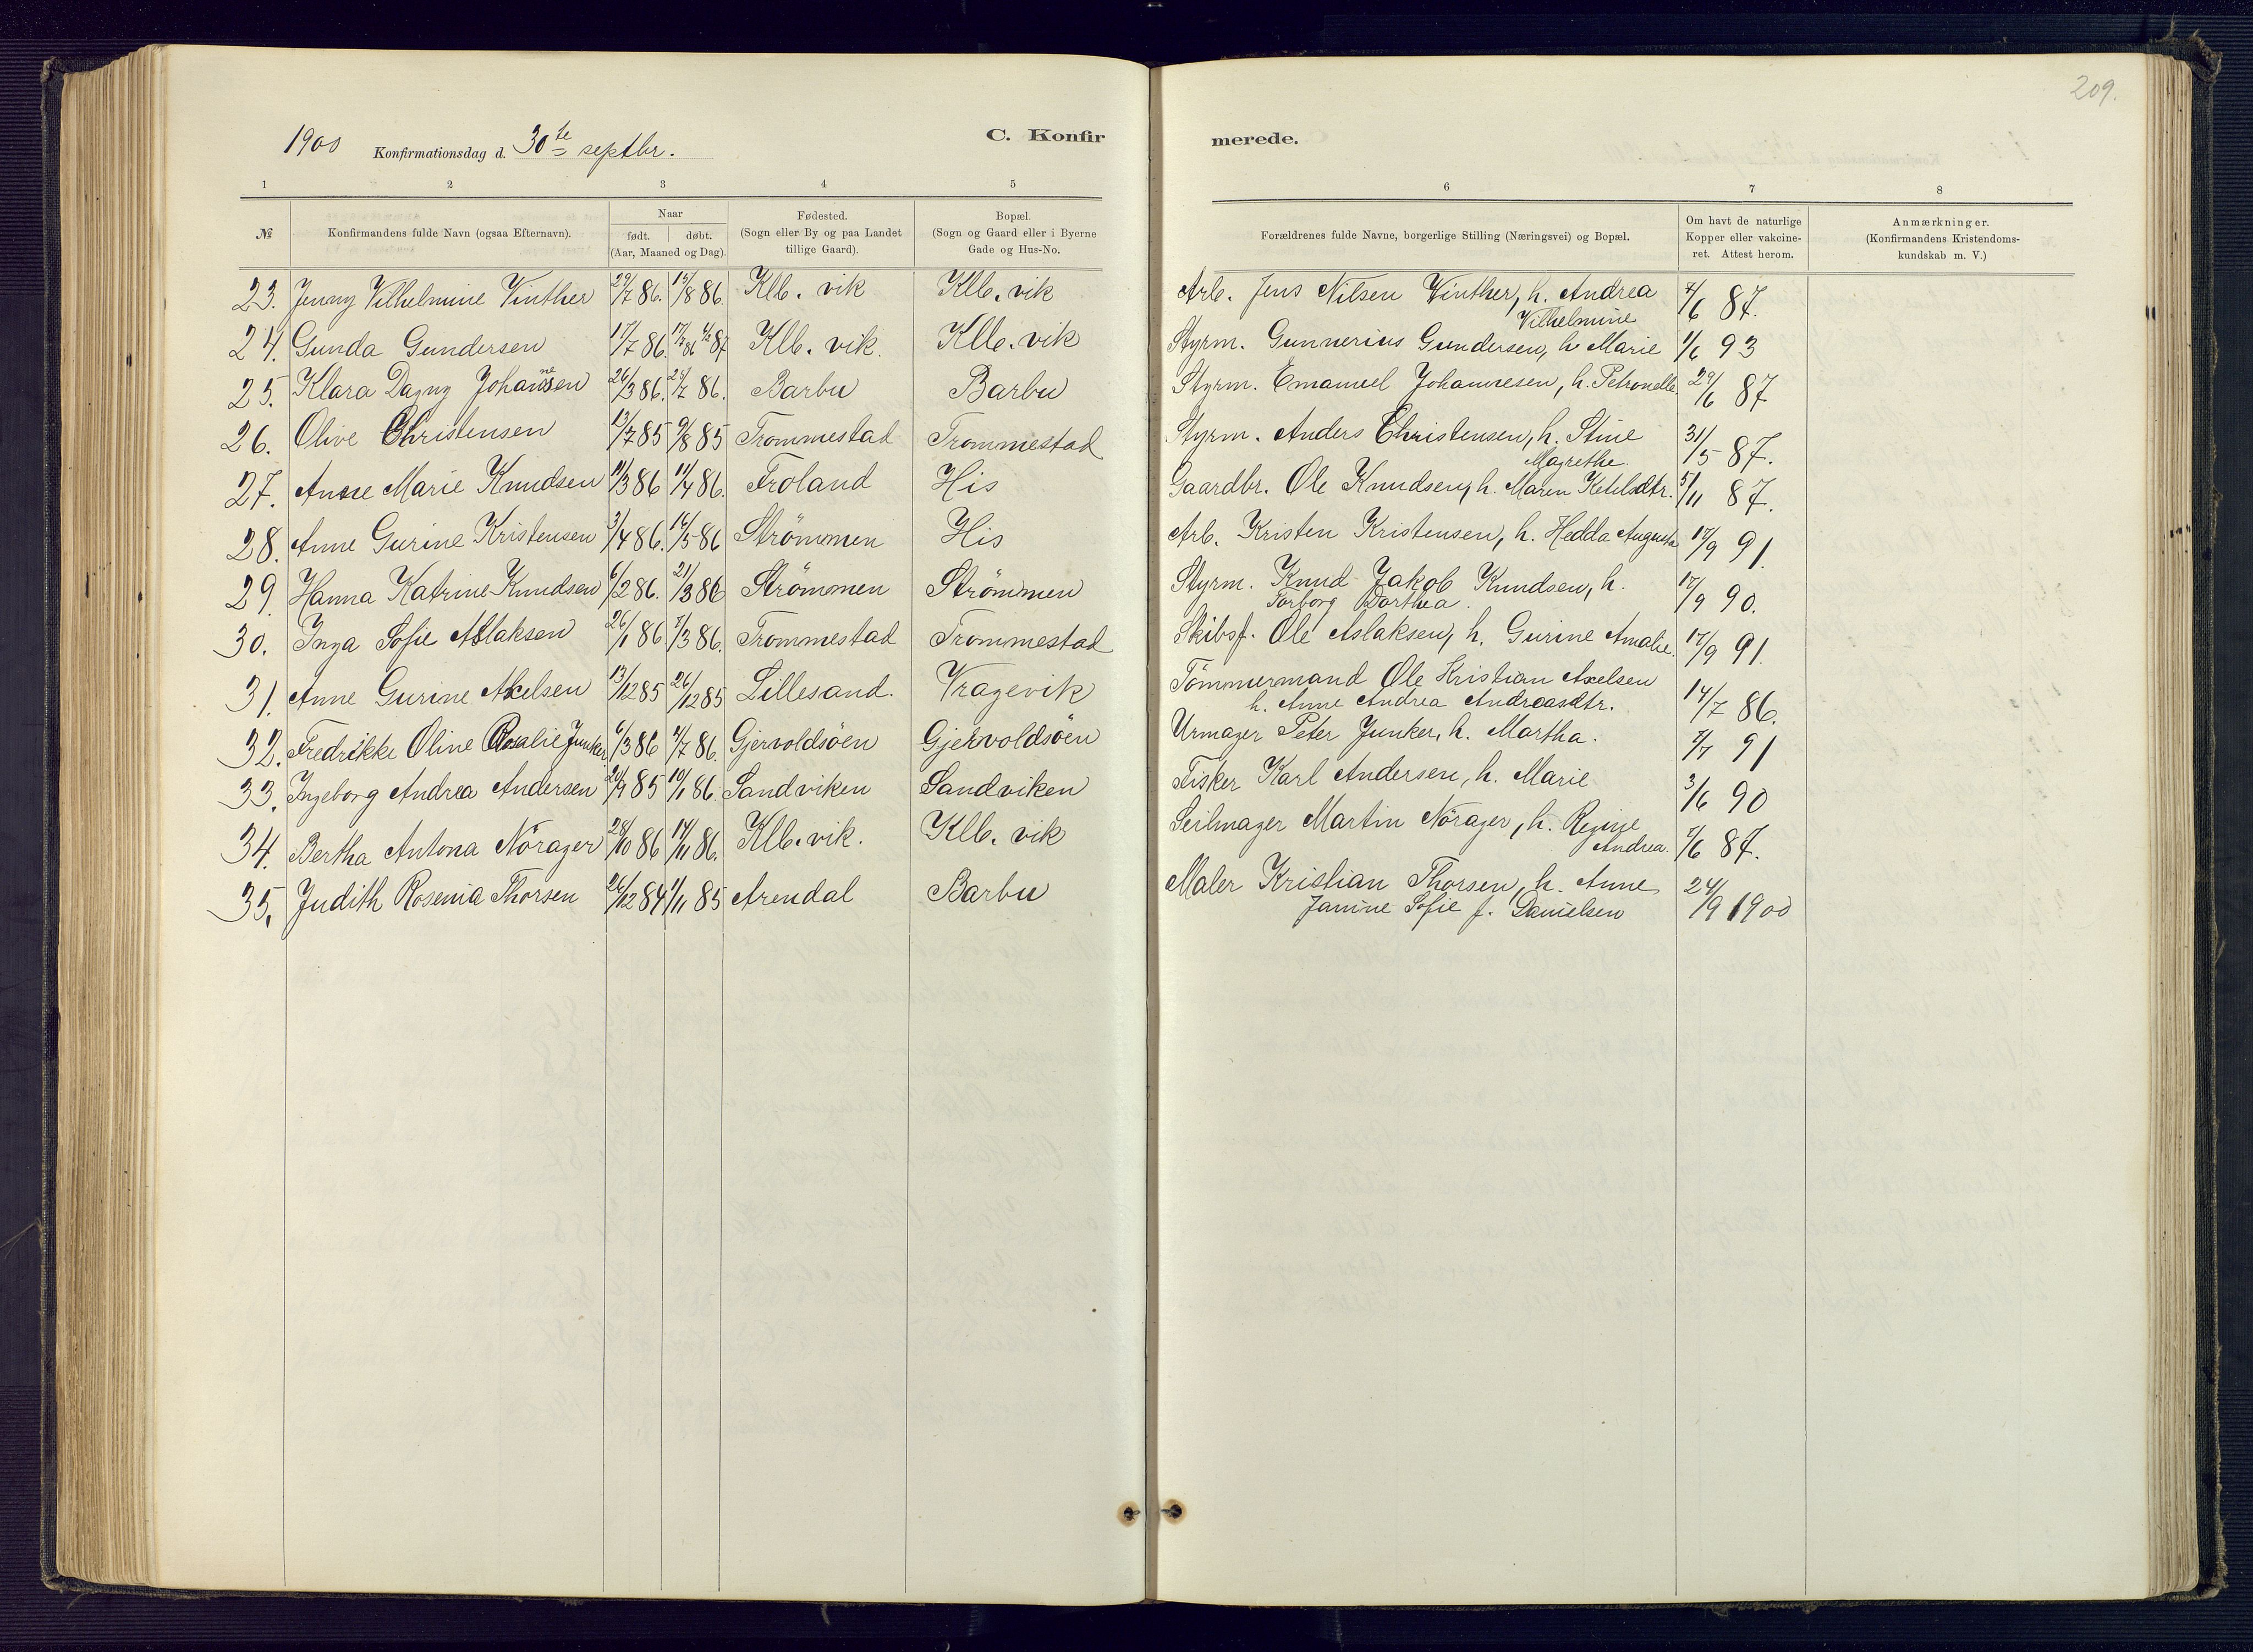 209.
1900 Konfirmationsdag d. 30te septbr. C. Konfirmerede.
1 2 3 4 5 6 7 8
№ Konfirmandens fulde Navn (ogsaa Efternavn). Naar født. døbt. (Aar, Maaned og Dag). Fødested. (Sogn eller By og paa Landet tillige Gaard). Bopæl. (Sogn og Gaard eller i Byerne Gade og Hus-No. Forældrenes fulde Navne, borgerlige Stilling (Næringsvei) og Bopæl. Om havt de naturlige Kopper eller vakcineret. Attest herom. Anmærkninger. (Konfirmandens Kristendomskundskab m. V.)
23. Jenny Vilhelmine Vinther 29/7 86. 15/8 86. Klb. vik Klb. vik Arb. Jens Nilsen Vinther, h. Andrea Vilhelmine 7/6 87.
24. Gunda Gundersen 17/7 86. 17/7 86 4/2 87 Klb. vik. Klb. vik Styrm. Gunnerius Gundersen, h. Marie 1/6 93
25. Klara Dagny Johannesen 26/3 86. 25/7 86. Barbu Barbu Styrm. Emanuel Johannesen, h. Petronelle 29/6 87
26. Olive Christensen 13/7 85 9/8 85 Trommestad Trommestad Styrm. Anders Christensen, h. Stine Magrethe. 31/5 87.
27. Anne Marie Knudsen 11/3 86 11/4 86. Froland His Gaardbr. Ole Knudsen, h. Maren Ketilsdtr. 5/11 87.
28. Anne Gurine Kristensen 3/4 86. 16/5 86 Strömmen His Arb. Kristen Kristensen, h. Hedda Augusta 17/9 91.
29. Hanna Katrine Knudsen 6/2 86. 21/3 86 Strömmen Strömmen Styrm. Knud Jakob Knudsen, h. Torborg Dorthea. 17/9 90.
30. Inga Sofie Aslaksen 26/1 86 7/3 86. Trommestad Trommestad Skibsf. Ole Aslaksen, h. Gurine Amalie. 17/9 91.
31. Anne Gurine Axelsen 13/12 85 26/12 85 Lillesand. Vragevik Tömmermand Ole Kristian Axelsen h. Anne Andrea Andreasdtr. 14/7 86.
32. Fredrikke Oline Rosalie Junker 6/3 86 4/7 86. Gjervoldsöen Gjervoldsöen Urmager Peter Junker, h. Martha. 7/7 91
33. Ingeborg Andrea Andersen 20/9 85 10/1 86. Sandviken Sandviken Fisker Karl Andersen, h. Marie 3/6 90
34. Bertha Antona Nörager 28/10 86 14/11 86. Klb. vik. Klb. vik Seilmager Martin Nörager, h. Regine Andrea. 7/6 87.
35. Judith Rosenia Thorsen 26/12 84 1/11 85 Arendal Barbu Maler Kristian Thorsen, h. Anne Janine Sofie f. Danielsen 24/9 1900